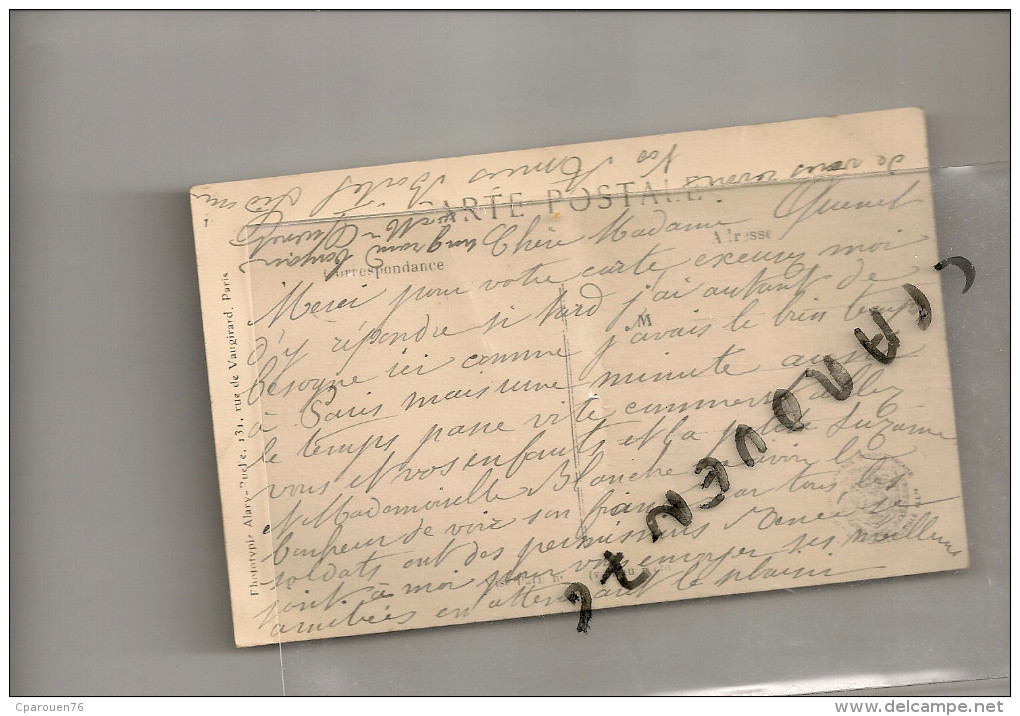 CARTE POSTALE
Correspondance
Adresse
M
Chère Madame Quenet
Merci pour votre carte excusez moi
d'y répondre si tard j'ai autant de
besogne ici comme j'avais le bien temps
à Paris mais une minute aussi
le temps passe vite comment allez
vous et vos enfants et la petite Suzanne
et Mademoiselle Blanche va avoir le
bonheur de voir son fiancé car tous les
soldats ont des permissions Renée se
joint à moi pour vous envoyer ses meilleures
amitiés en attendant le plaisir
de vous revoir
Vos Amies
131, rue de Vaugirard, Paris
CPAROUEN76
Cparouen76
www.delcampe.net